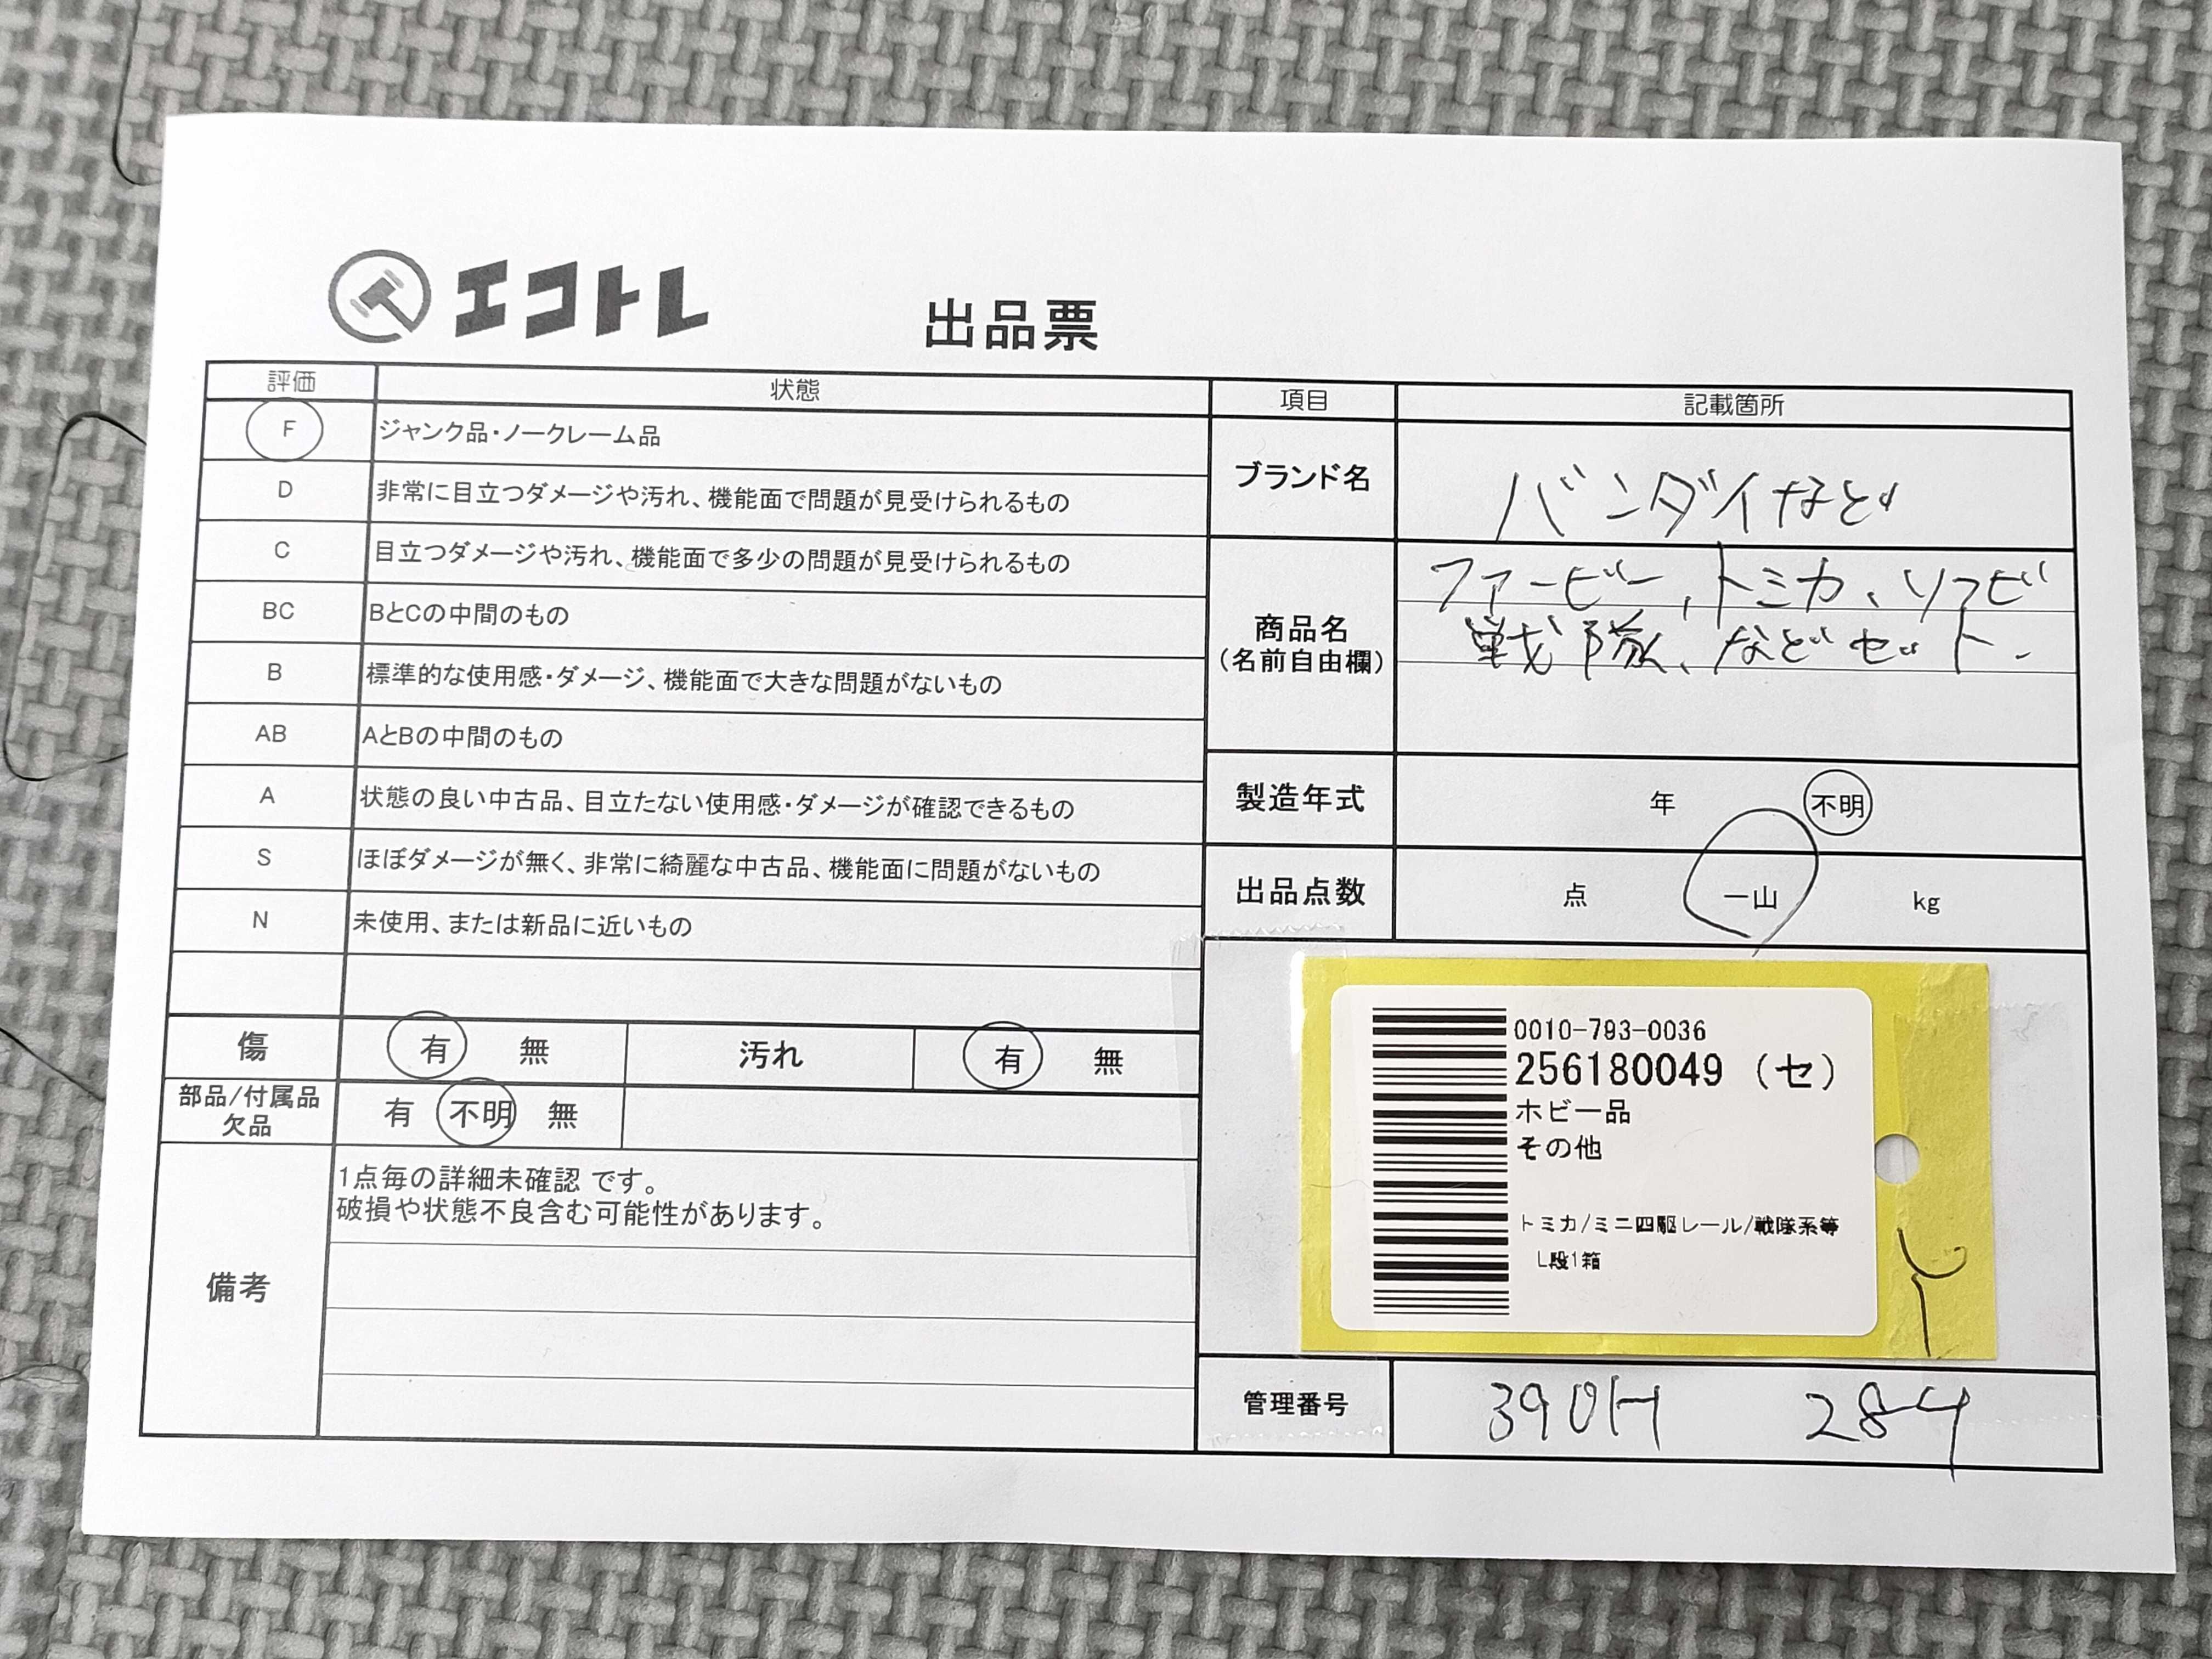 エコトレ
出品票
評価 状態
F ジャンク品・ノークレーム品
D 非常に目立つダメージや汚れ、機能面で問題が見受けられるもの
C 目立つダメージや汚れ、機能面で多少の問題が見受けられるもの
BC BとCの中間のもの
B 標準的な使用感・ダメージ、機能面で大きな問題がないもの
AB AとBの中間のもの
A 状態の良い中古品、目立たない使用感・ダメージが確認できるもの
S ほぼダメージが無く、非常に綺麗な中古品、機能面に問題がないもの
N 未使用、または新品に近いもの
傷 有 無 汚れ 有 無
部品/付属品
欠品
有 不明 無
備考
1点毎の詳細未確認 です。
破損や状態不良含む可能性があります。
項目 記載箇所
ブランド名 バンダイなど
商品名
(名前自由欄)
ファービー、トミカ、ソフビ
戦隊、などセット.
製造年式 年 不明
出品点数 点 一山 kg
0010-793-0036
256180049 (セ)
ホビー品
その他
トミカ/ミニ四駆レール/戦隊系等
L段1箱
管理番号 390H 284